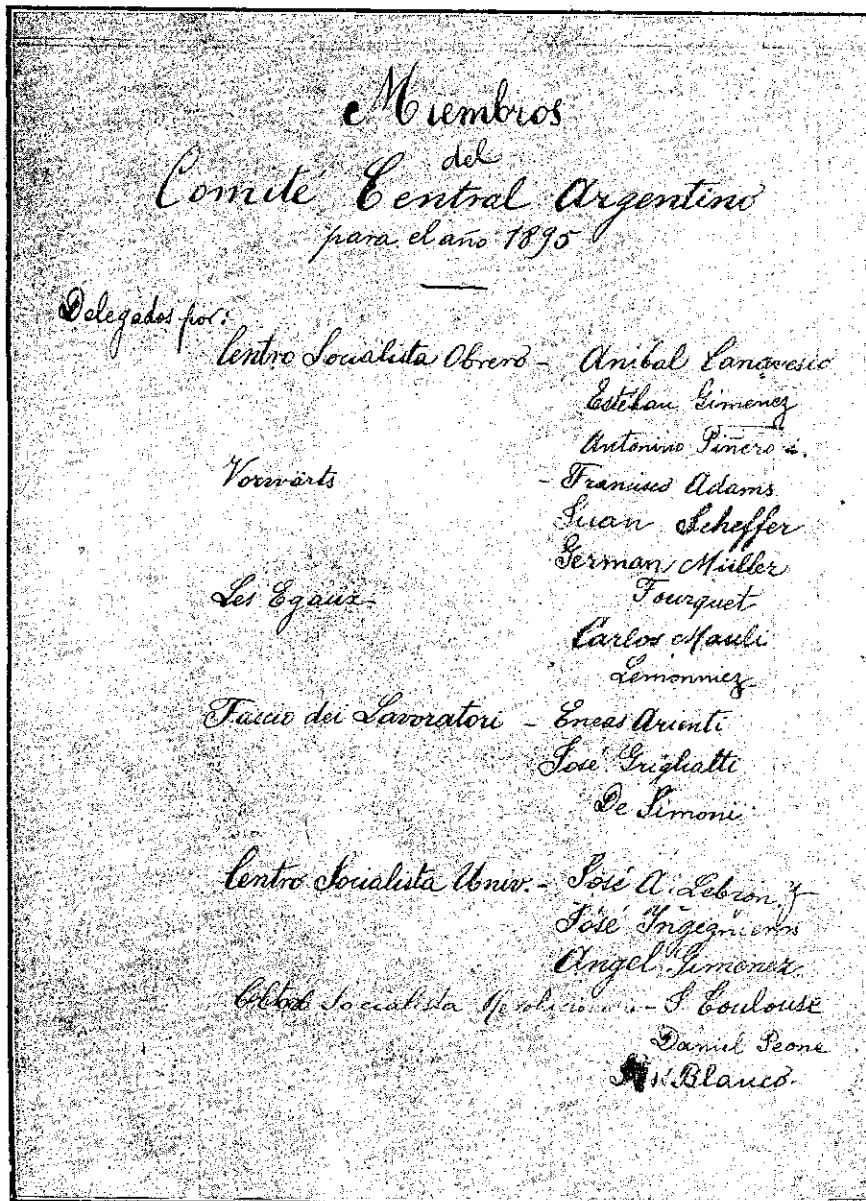 Miembros
del
Comité Central Argentino
para el año 1895
Delegados por:
Centro Socialista Obrero - Anibal Canavesio
Estéban Gimenez
Antonino Piñero
Vorwärts - Francisco Adams
Juan Scheffer
German Müller
Les Egaux - Fourquet
Carlos Mauli
Lemonniez
Fascio dei Lavoratori - Eneas Arienti
José Griglialti
De Simoni
Centro Socialista Univ. - José A. Lebron
José Ingegnieros
Angel Gimenez
Socialista - Toulouse
Daniel Peone
Blanco